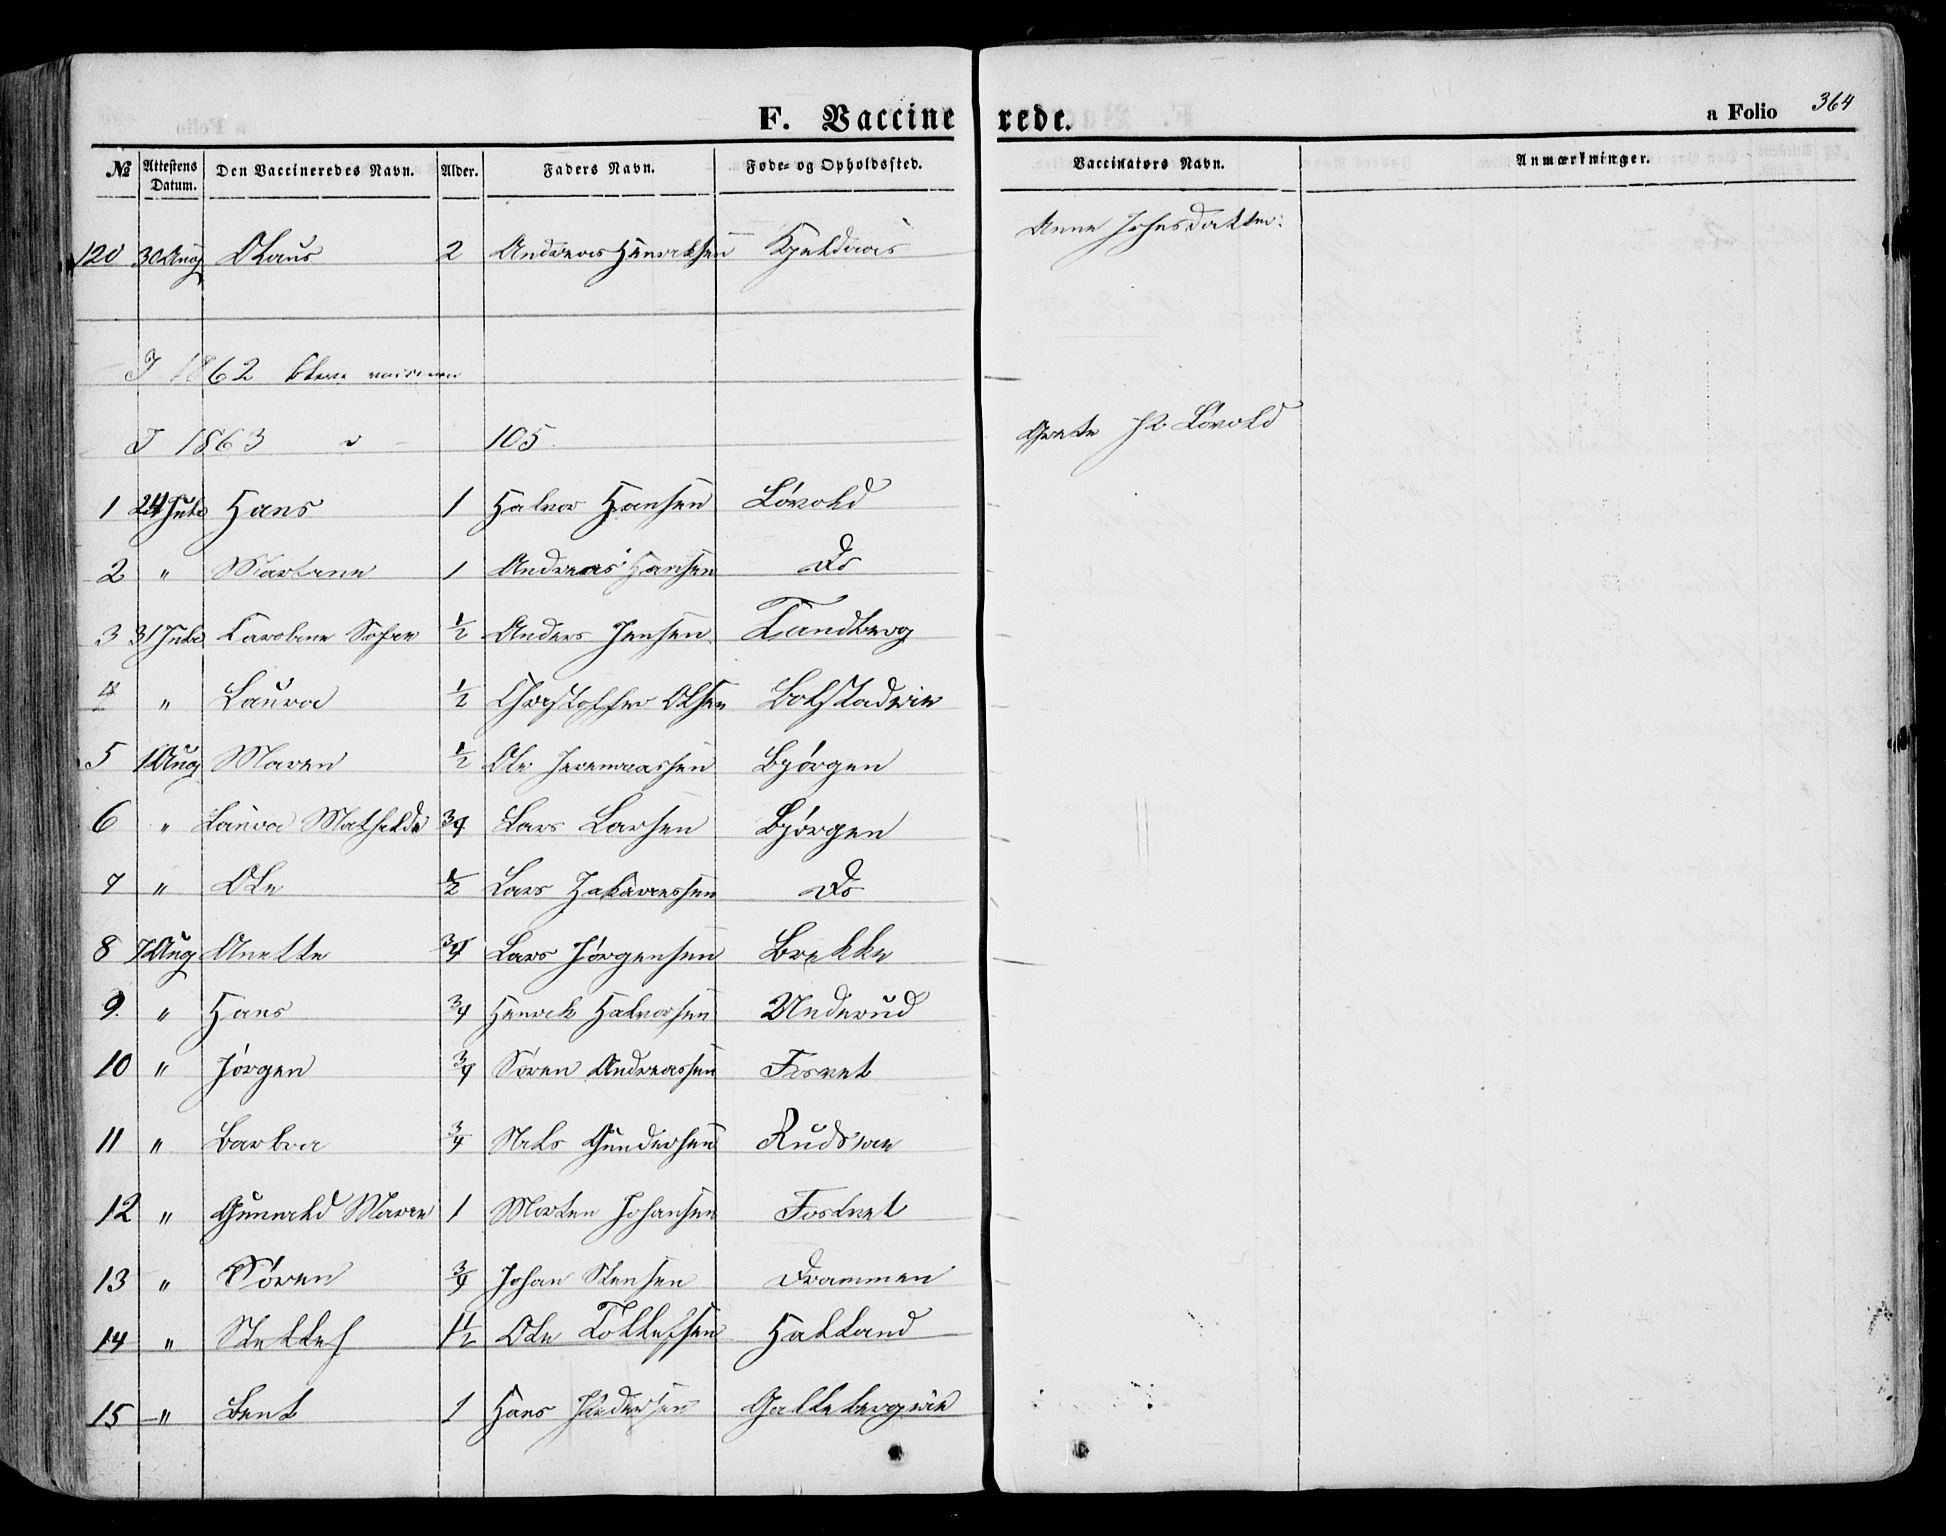 F. Vaccinerede.
a Folio 364
№ Attestens Datum. Den Vaccineredes Navn. Alder. Faders Navn. Føde- og Opholdssted. Vaccinators Navn. Anmærkninger.
120 30 Aug Olaus 2 Andreas Henriksen Kjeldaas Anne Johnsdatter:
I 1862 bleve
I 1863 " 105 Grete Lövold
1 24 Juli Hans 1 Halvor Hansen Lövold
2 " Martine 1 Andreas Hansen Do
3 31 Juli Caroline Sofie 1/2 Anders Jensen Tandberg
4 " Laura 1/2 Christoffer Olsen Bolstadeie
5 1 Aug Maren 1/2 Ole Jeremiassen Bjørgen
6 " Laura Mathilde 3/4 Lars Larsen Bjørgen
7 " Ole 1/2 Lars Zakariassen Do
8 7 Aug Anette 3/4 Lars Jörgensen Brekke
9. " Hans 3/4 Henrik Halvorsen Underud
10 " Jörgen 3/4 Sören Andreassen Fosvet
11 " Barbra 3/4 Niels Gundersen Rudseie
12 " Gunnild Marie 1 Morten Johansen Fostvet
13 " Sören 3/4 Johan Stensen Drammen
14 " Stellef 1 1/2 Ole Tollefsen Halland
15 " Bent 1 Hans Gallebergeie